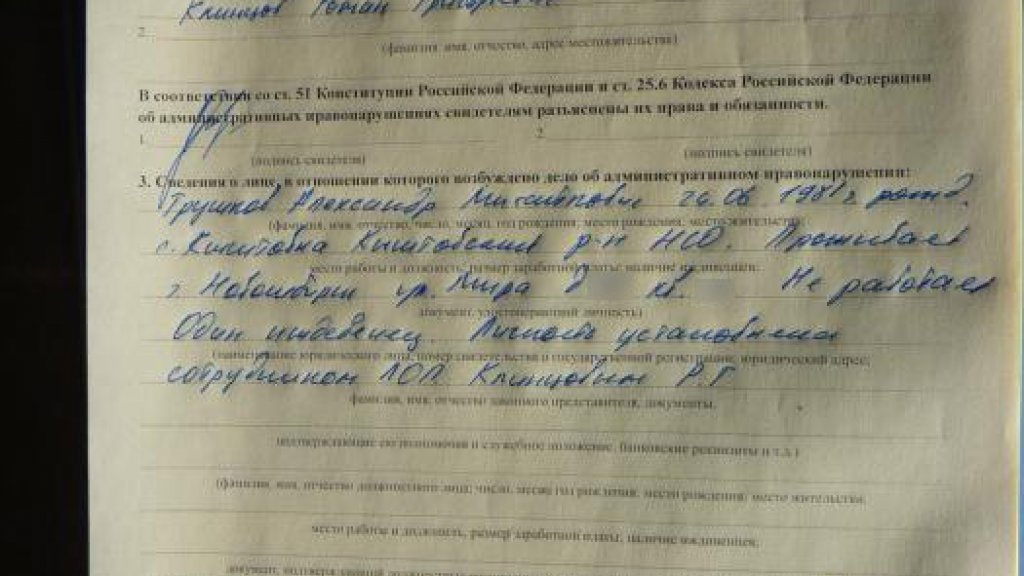 Клинцов Роман Григорьевич
2.
(фамилия, имя, отчество, адрес местожительства)
В соответствии со ст. 51 Конституции Российской Федерации и ст. 25.6 Кодекса Российской Федерации
об административных правонарушениях свидетелям разъяснены их права и обязанности.
1. 2
(подпись свидетеля) (подпись свидетеля)
3. Сведения о лице, в отношении которого возбуждено дело об административном правонарушении:
Трушков Александр 26.06.1981 г. рожд.
(фамилия, имя, отчество, число, месяц, год рождения, место рождения, местожительства;
с. Кыштовка Кыштовский р-н НСО. Проживает
место работы и должность, размер заработной платы; наличие иждивенцев;
г. Новосибирск ул. Мира д кв. Не работает
документ, удостоверяющий личность)
Один иждивенец. Личность установлена
(наименование юридического лица, номер свидетельства о государственной регистрации; юридический адрес;
сотрудником ЛОП Клинцовым Р.Г
фамилия, имя, отчество законного представителя, документы,
подтверждающие его полномочия и служебное положение, банковские реквизиты и т.д.)
(фамилия, имя, отчество должностного лица; число, месяц, год рождения; место рождения; место жительства;
место работы и должность, размер заработной платы, наличие иждивенцев;